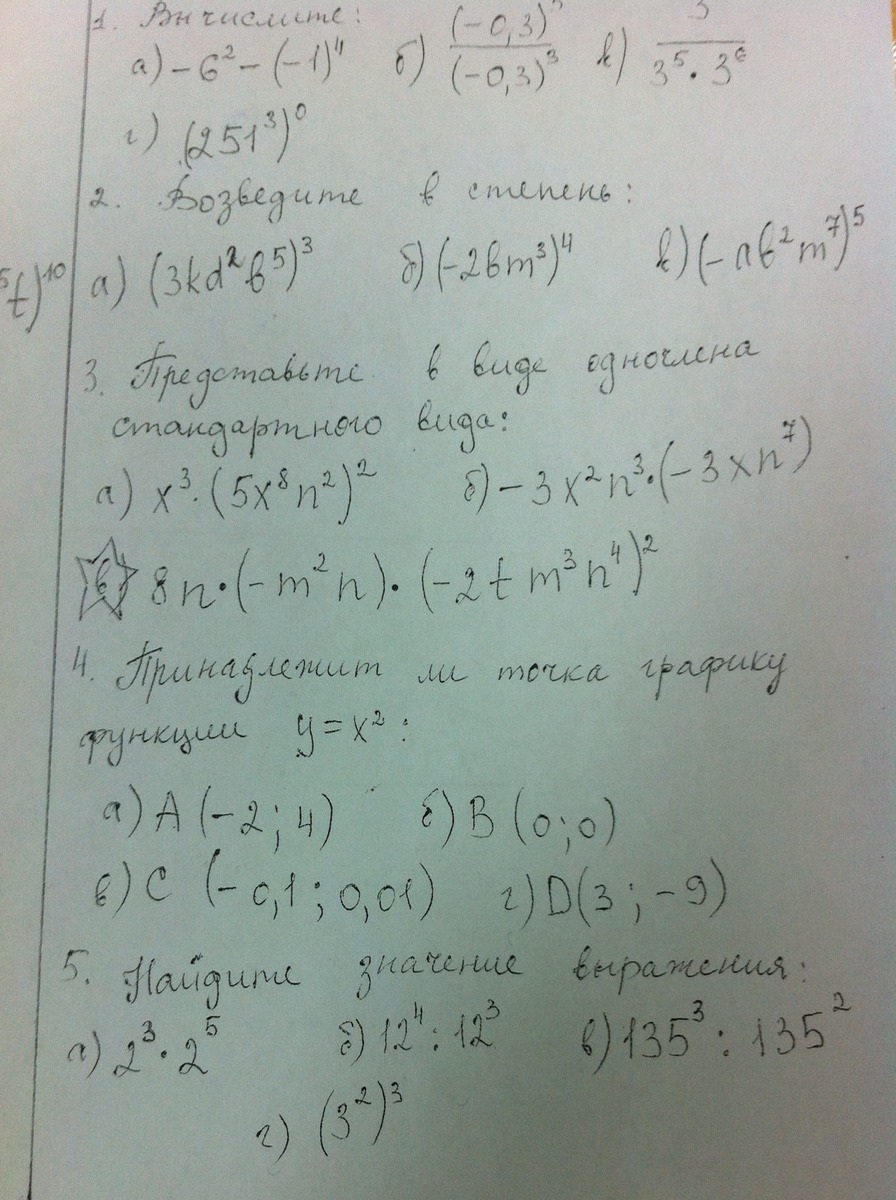 1. Вычислите:
а) -6² - (-1)⁴ б) (-0,3) / (-0,3)³ в) 3 / 3⁵·3⁶
г) (251³)⁰
2. Возведите в степень:
⁵t)¹⁰ а) (3kd²b⁵)³ б) (-2bm³)⁴ в) (-ab²m⁷)⁵
3. Представьте в виде одночлена
стандартного вида:
а) x³·(5x⁸n²)² б) -3x²n³·(-3xn⁷)
в) 8n·(-m²n)·(-2tm³n⁴)²
4. Принадлежит ли точка графику
функции y=x²:
а) A (-2; 4) б) B (0;0)
в) C (-0,1; 0,01) г) D(3; -9)
5. Найдите значение выражения:
а) 2³·2⁵ б) 12⁴:12³ в) 135³:135²
г) (3²)³